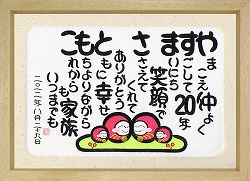 やまこえ仲よく
すごして20年
まいにち
笑顔で
ささえて
くれて
ありがとう
ともに幸せ
もちよりながら
これからも家族
いつまでも
二〇二二年八月二十九日